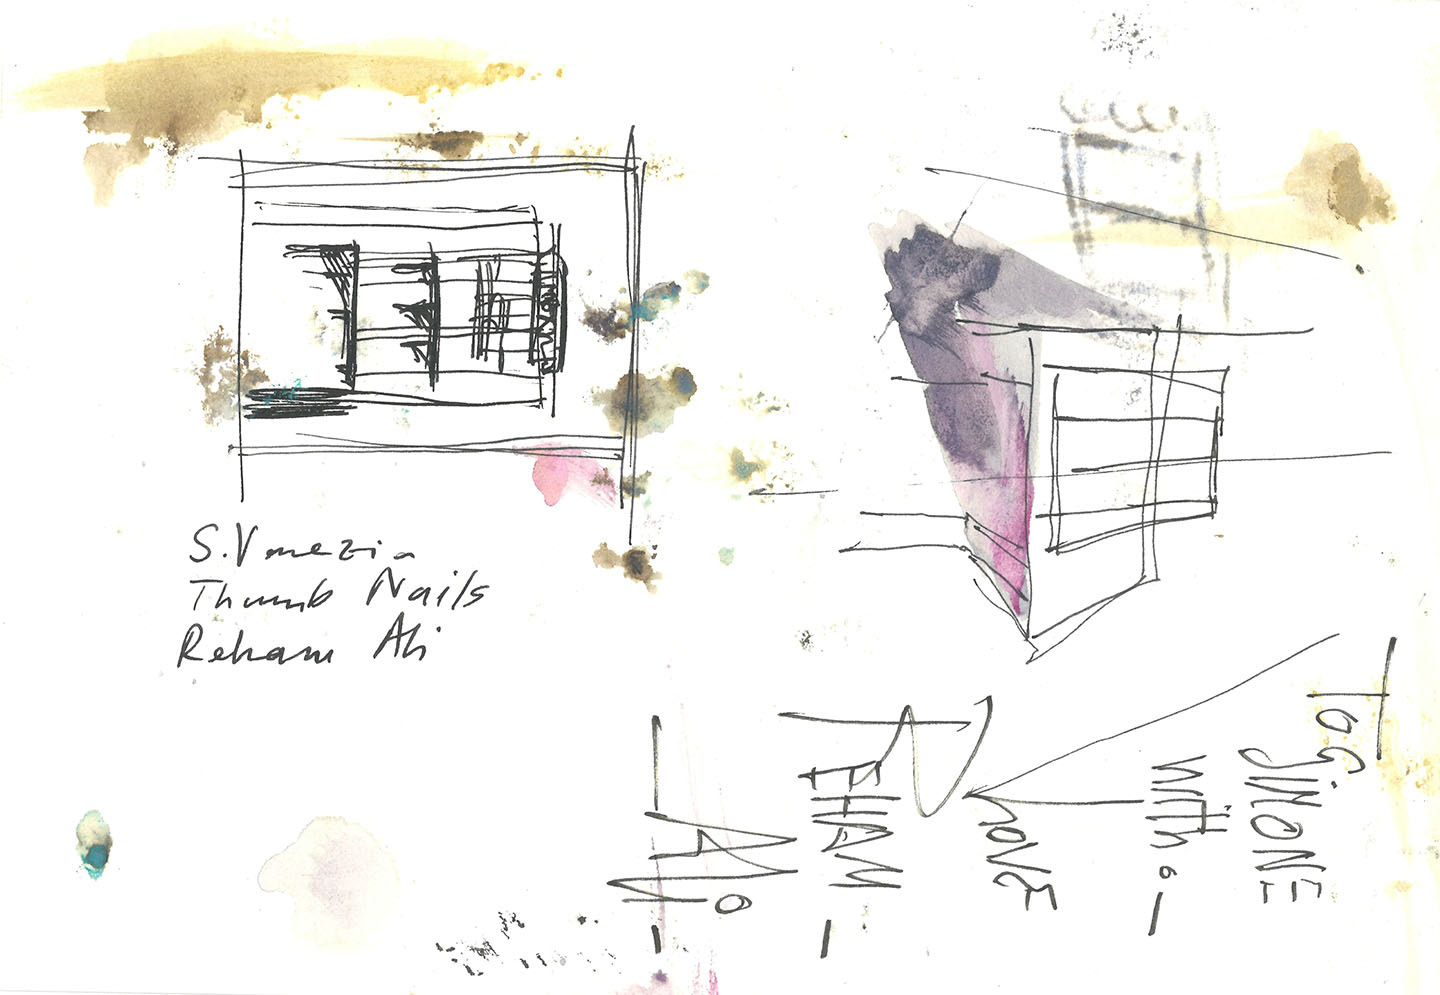 S. Venezia
Thumb Nails
Reham Ali
To:
SIMONE
with.
LOVE
REHAM
Ali